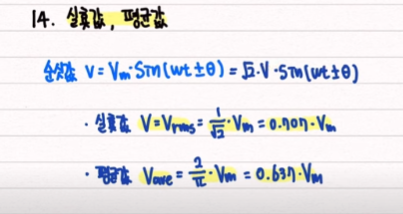 14. 실횻값, 평균값
순싯값 v = Vm·Sin(wt±θ) = √2·V·Sin(wt±θ)
· 실횻값 V = Vrms = 1/√2·Vm = 0.707·Vm
· 평균값 Vave = 2/π·Vm = 0.637·Vm